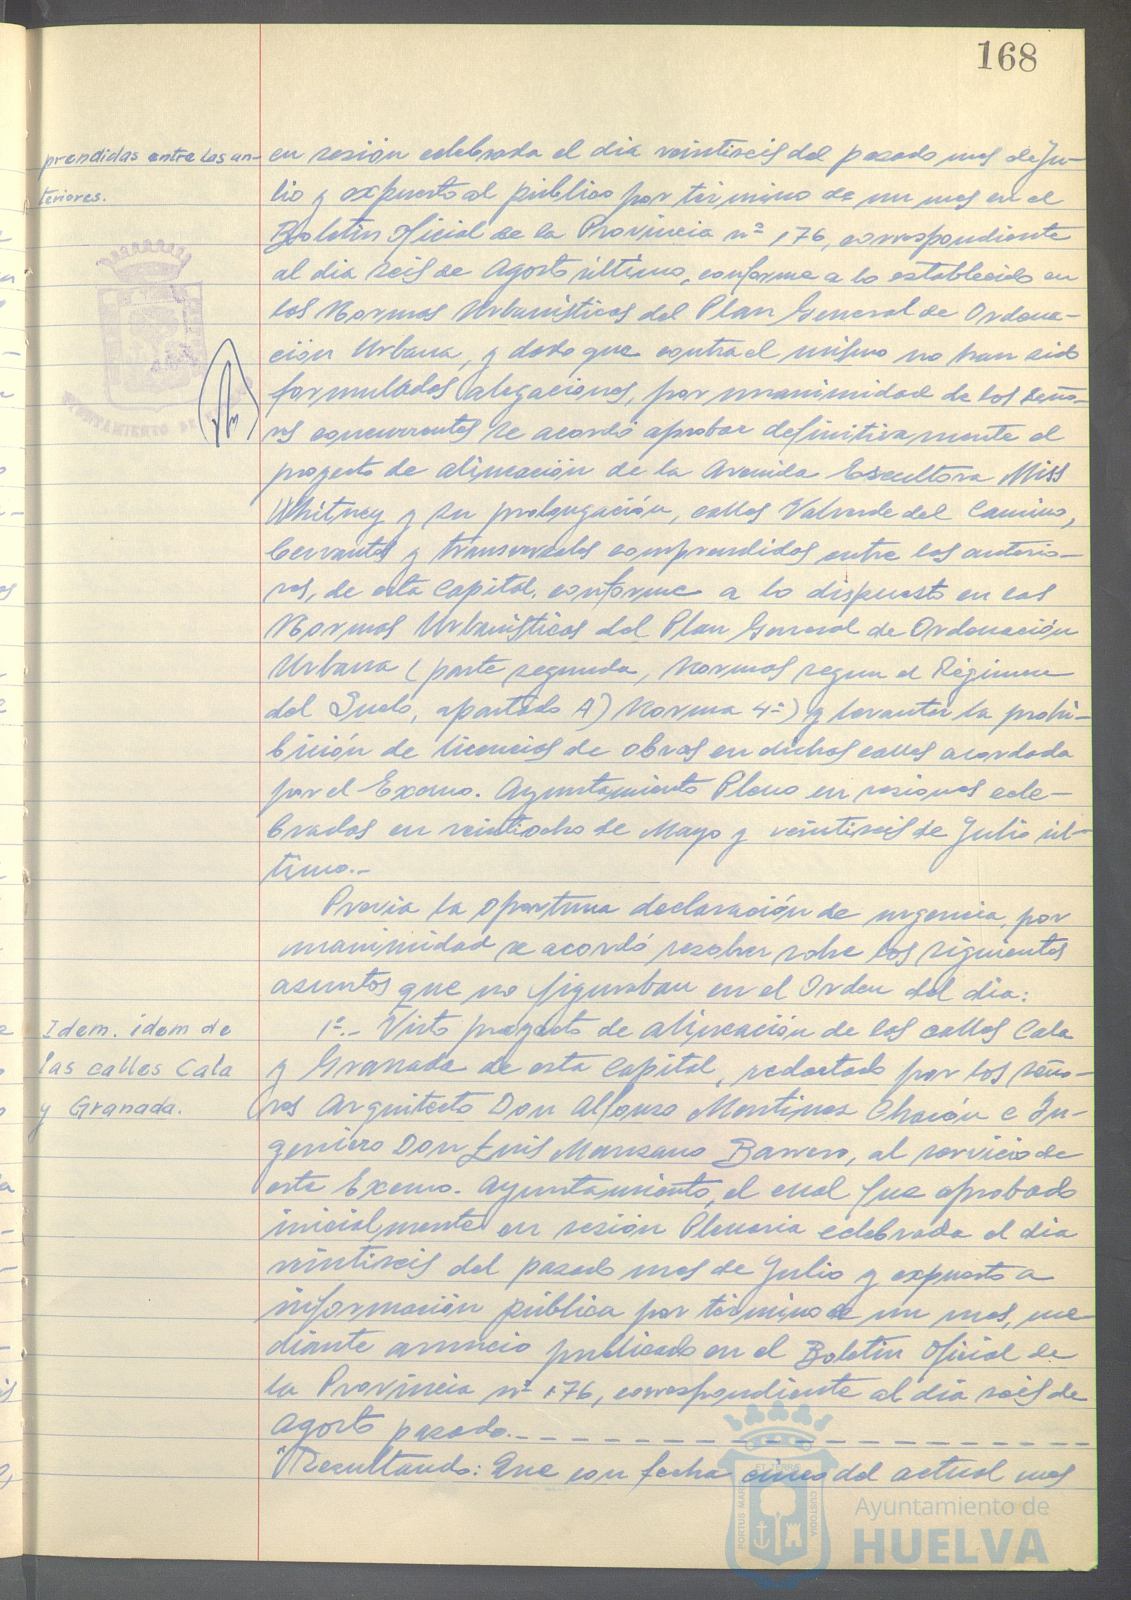 168
prendidas entre las an-
teriores.
en sesión celebrada el dia veintiseis del pasado mes de Ju-
lio y expuesto al público por término de un mes en el
Boletin Oficial de la Provincia nº 176, correspondiente
al dia seis de Agosto último, conforme a lo establecido en
las Normas Urbanísticas del Plan General de Ordena-
ción Urbana, y dado que contra el mismo no han sido
formuladas alegaciones, por unanimidad de los seño-
res concurrentes se acordó aprobar definitivamente el
proyecto de alineación de la Avenida Escultora Miss
Whitney y su prolongación, calles Valverde del Camino,
Cervantes y transversales comprendidas entre las anterio-
res, de esta Capital, conforme a lo dispuesto en las
Normas Urbanísticas del Plan General de Ordenación
Urbana (parte segunda, Normas segun el Régimen
del Suelo, apartado A) Norma 4ª) y levantar la prohi-
bición de licencias de obras en dichas calles acordada
por el Excmo. Ayuntamiento Pleno en sesiones cele-
bradas en veintiocho de Mayo y veintiseis de Julio úl-
timo.-
Previa la oportuna declaración de urgencia, por
unanimidad se acordó resolver sobre los siguientes
asuntos que no figuraban en el Orden del dia:
Idem. idem de
las calles Cala
y Granada.
1º.- Visto proyecto de alineación de las calles Cala
y Granada de esta Capital, redactado por los seño-
res Arquitecto Don Alfonso Martinez Chacón e In-
geniero Don Luis Manzano Barrero, al servicio de
este Excmo. Ayuntamiento, el cual fue aprobado
inicialmente en sesión Plenaria celebrada el dia
veintiseis del pasado mes de Julio y expuesto a
información pública por término de un mes, me-
diante anuncio publicado en el Boletin Oficial de
la Provincia nº 176, correspondiente al dia seis de
Agosto pasado.
"Resultando: Que con fecha cinco del actual mes
AYUNTAMIENTO DE
PORTUS MARIS ET TERRE CUSTODIA
Ayuntamiento de
HUELVA